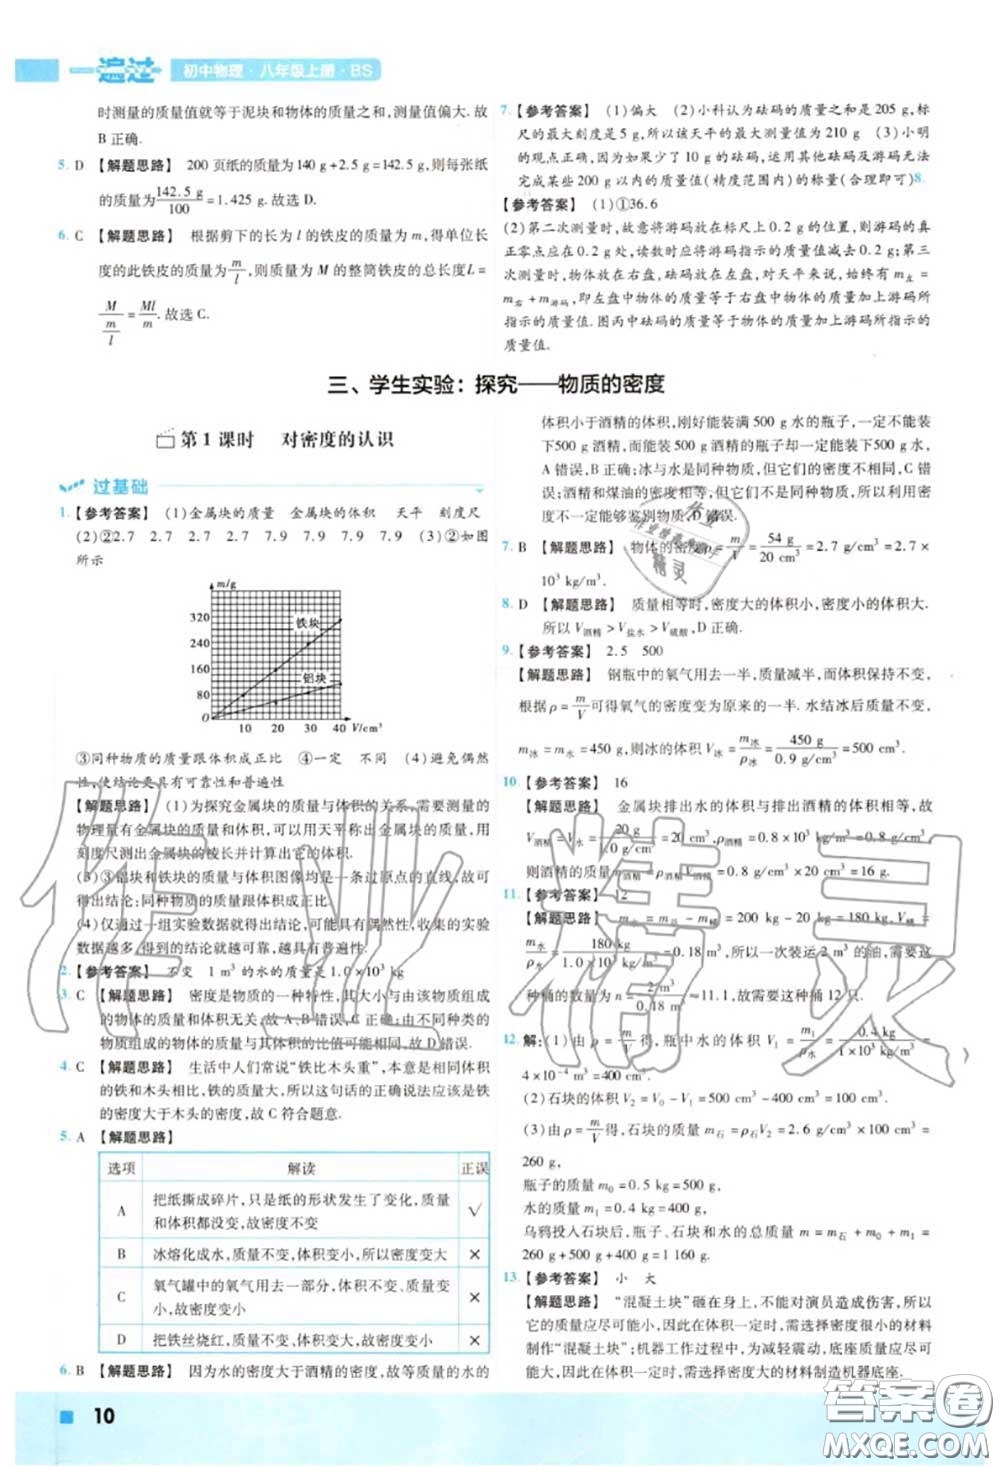 一遍过 初中物理·八年级上册·BS
时测量的质量值就等于泥块和物体的质量之和,测量值偏大.故
B 正确.
5. D 【解题思路】 200 页纸的质量为140 g+2.5 g=142.5 g,则每张纸
的质量为142.5 g/100=1.425 g.故选 D.
6. C 【解题思路】 根据剪下的长为 l 的铁皮的质量为 m,得单位长
度的此铁皮的质量为m/l,则质量为 M 的整筒铁皮的总长度L=
M/(m/l)=Ml/m.故选 C.
7.【参考答案】 (1)偏大 (2)小科认为砝码的质量之和是 205 g,标
尺的最大刻度是 5 g,所以该天平的最大测量值为 210 g (3)小明
的观点正确,如果缺少了 10 g 的砝码,运用其他砝码及游码无法
完成某些 200 g 以内的质量值(精度范围内)的称量(合理即可)8.
【参考答案】 (1)①36.6
(2)第二次测量时,故意将游码放在标尺上 0.2 g 的位置,则游码的真
正零点应在 0.2 g 处,读数时应将游码指示的质量值减去 0.2 g;第三
次测量时,物体放在右盘,砝码放在左盘,对天平来说,始终有 m左=
m右+m游码,即左盘中物体的质量等于右盘中物体的质量加上游码所
指示的质量值.图丙中砝码的质量等于物体的质量加上游码所指示的
质量值.
三、学生实验：探究——物质的密度
第 1 课时 对密度的认识
过基础
1.【参考答案】 (1)金属块的质量 金属块的体积 天平 刻度尺
(2)②2.7 2.7 2.7 7.9 7.9 7.9 (3)②如图
所示
m/g
320
240
160
80
0
10 20 30 40 V/cm³
铁块
铝块
③同种物质的质量跟体积成正比 ④一定 不同 (4)避免偶然
性,使结论更具有可靠性和普遍性
【解题思路】 (1)为探究金属块的质量与体积的关系,需要测量的
物理量有金属块的质量和体积,可以用天平称出金属块的质量,用
刻度尺测出金属块的棱长并计算出它的体积.
(3)③铝块和铁块的质量与体积图像均是一条过原点的直线,故可
得出结论:同种物质的质量跟体积成正比.
(4)仅通过一组实验数据就得出结论,可能具有偶然性,收集的实验
数据越多,得到的结论就越可靠,越具有普遍性.
2.【参考答案】 不变 1 m³ 的水的质量是 1.0×10³ kg
3. C 【解题思路】 密度是物质的一种特性,其大小与由该物质组成
的物体的质量和体积无关,故 A、B 错误,C 正确;由不同种
物质组成的物体的质量与体积的比值可能相同,故 D 错误.
4. C 【解题思路】 生活中人们常说“铁比木头重”,本意是相同体积
的铁和木头相比,铁的质量大,所以这句话的正确说法应该是铁
的密度大于木头的密度,故 C 符合题意.
5. A 【解题思路】
选项 解读 正误
A 把纸撕成碎片,只是纸的形状发生了变化,质量
和体积都没变,故密度不变 √
B 冰熔化成水,质量不变,体积变小,所以密度变大 ×
C 氧气罐中的氧气用去一部分,体积不变,质量变
小,故密度变小 ×
D 把铁丝烧红,质量不变,体积变大,故密度变小 ×
6. B 【解题思路】 因为水的密度大于酒精的密度,故等质量的水的
体积小于酒精的体积,刚好能装满 500 g 水的瓶子,一定不能装
下500 g 酒精,而能装 500 g 酒精的瓶子却一定能装下 500 g 水,
A 错误,B 正确;冰与水是同种物质,但它们的密度不相同,故 C
错误;酒精和煤油是两种不同的物质,但它们的密度相同,用密度
不一定能够鉴别物质,D 错误.
7. B 【解题思路】 物体的密度ρ=m/V=54 g/20 cm³=2.7 g/cm³=2.7×
10³ kg/m³.
8. D 【解题思路】 质量相等时,密度大的体积小,密度小的体积大.
所以 V酒精>V盐水>V硫酸,D 正确.
9.【参考答案】 2.5 500
【解题思路】 钢瓶中的氧气用去一半,质量减半,而体积保持不变,
根据 ρ=m/V可得氧气的密度变为原来的一半.水结冰后质量不变,
m冰=m水=450 g,则冰的体积 V冰=m冰/ρ冰=450 g/0.9 g/cm³=500 cm³.
10.【参考答案】 16
【解题思路】 金属块排出水的体积与排出酒精的体积相等,故
V酒精=V水=20 g/1.0 g/cm³=20 cm³,ρ酒精=0.8×10³ kg/m³=0.8 g/cm³
则酒精的质量为 m酒精=ρ酒精V酒精=0.8 g/cm³×20 cm³=16 g.
11.【参考答案】 12
【解题思路】 m水=m总-m桶=200 kg-20 kg=180 kg,V桶=V水=
m水/ρ水=180 kg/1.0×10³ kg/m³=0.18 m³,所以一次装运 2 m³ 的油,需要
这种桶的数量为 n=2 m³/0.18 m³≈11.1,故需要这种桶 12 只.
12. 解:(1)由 ρ=m/V得,瓶中水的体积 V₁=m₁/ρ水=0.4 kg/1×10³ kg/m³=
4×10⁻⁴ m³=400 cm³.
(2)石块的体积 V₂=V₀-V₁=500 cm³-400 cm³=100 cm³.
(3)由 ρ=m/V得,石块的质量 m石=ρ石V₂=2.6 g/cm³×100 cm³=
260 g,
瓶子的质量 m₀=0.5 kg=500 g,
水的质量 m₁=0.4 kg=400 g,
乌鸦投入石块后,瓶子、石块和水的总质量 m=m石+m₀+m₁=
260 g+500 g+400 g=1 160 g.
13.【参考答案】 小 大
【解题思路】 “混凝土块”砸在身上,不能对演员造成伤害,所以它
的质量应尽可能小,在体积一定时,需选择密度小的材料
制作“混凝土块”;机器工作过程中,为减轻震动,底座质量应尽可
能大,故在体积一定时,需选择密度大的材料制造机器底座.
10
作业精灵
答案卷
MXQE.COM